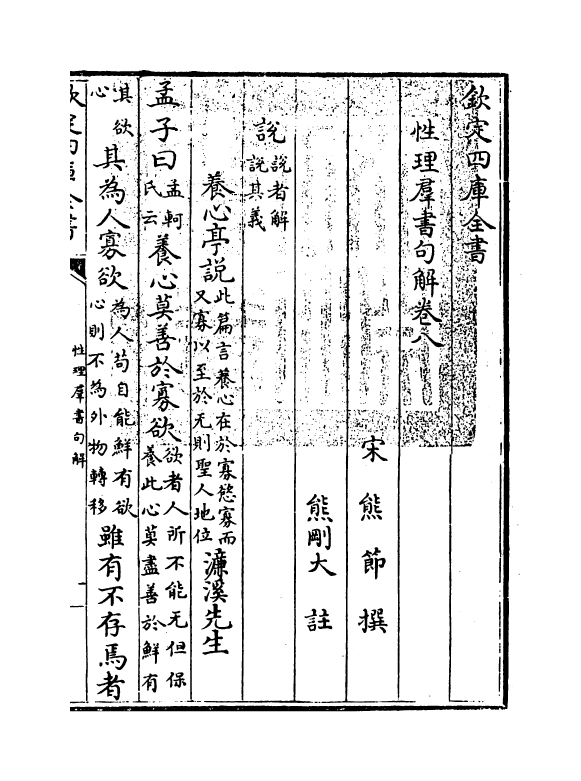 欽定四庫全書
性理羣書句解卷八
宋 熊節 撰
熊剛大 註
說說者解說其義
養心亭說此篇言養心在於寡慾寡而又寡以至於无則聖人地位濓溪先生
孟子曰孟軻氏云養心莫善於寡欲欲者人所不能无但保養此心莫盡善於鮮有
其欲心其為人寡欲為人苟自能鮮有欲心則不為外物轉移雖有不存焉者
欽定四庫全書
性理羣書句解
一